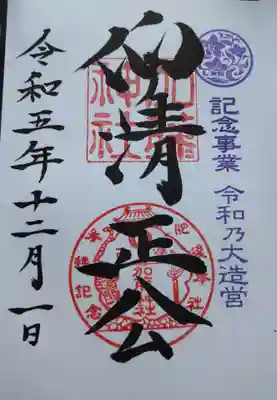 記念事業 令和乃大造営
仰清正公
加藤神社
令和五年十二月一日